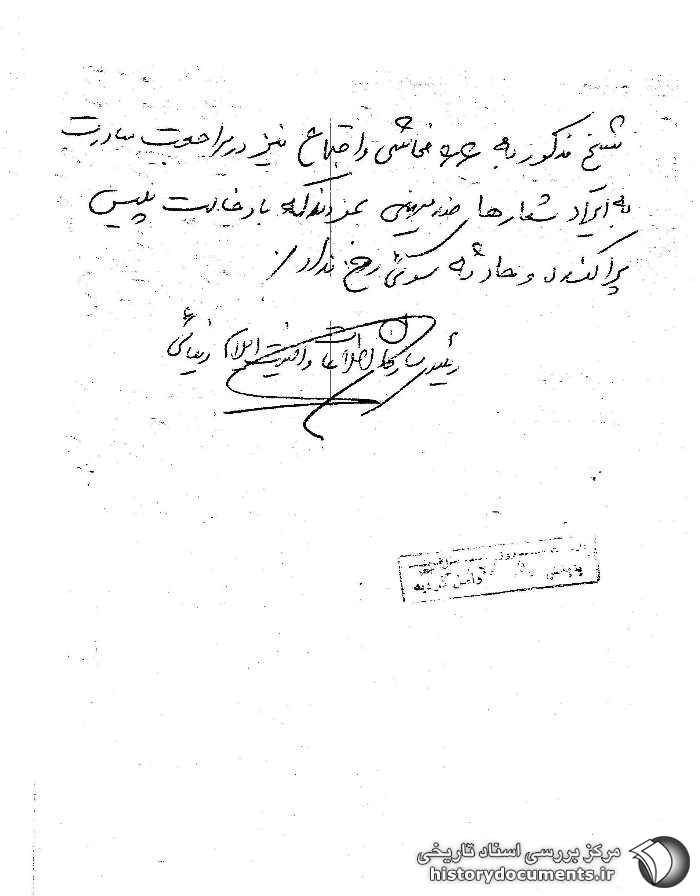 شیخ مذکور به فحاشی و اجتماع نیز در مراجعت مبادرت
به ایراد شعارهای ضد میهنی نمودند که با دخالت پلیس
پراکنده و حادثه سوئی رخ نداد/.
رئیس سازمان اطلاعات و امنیت ایلام
واصل گردید
مرکز بررسی اسناد تاریخی
historydocuments.ir